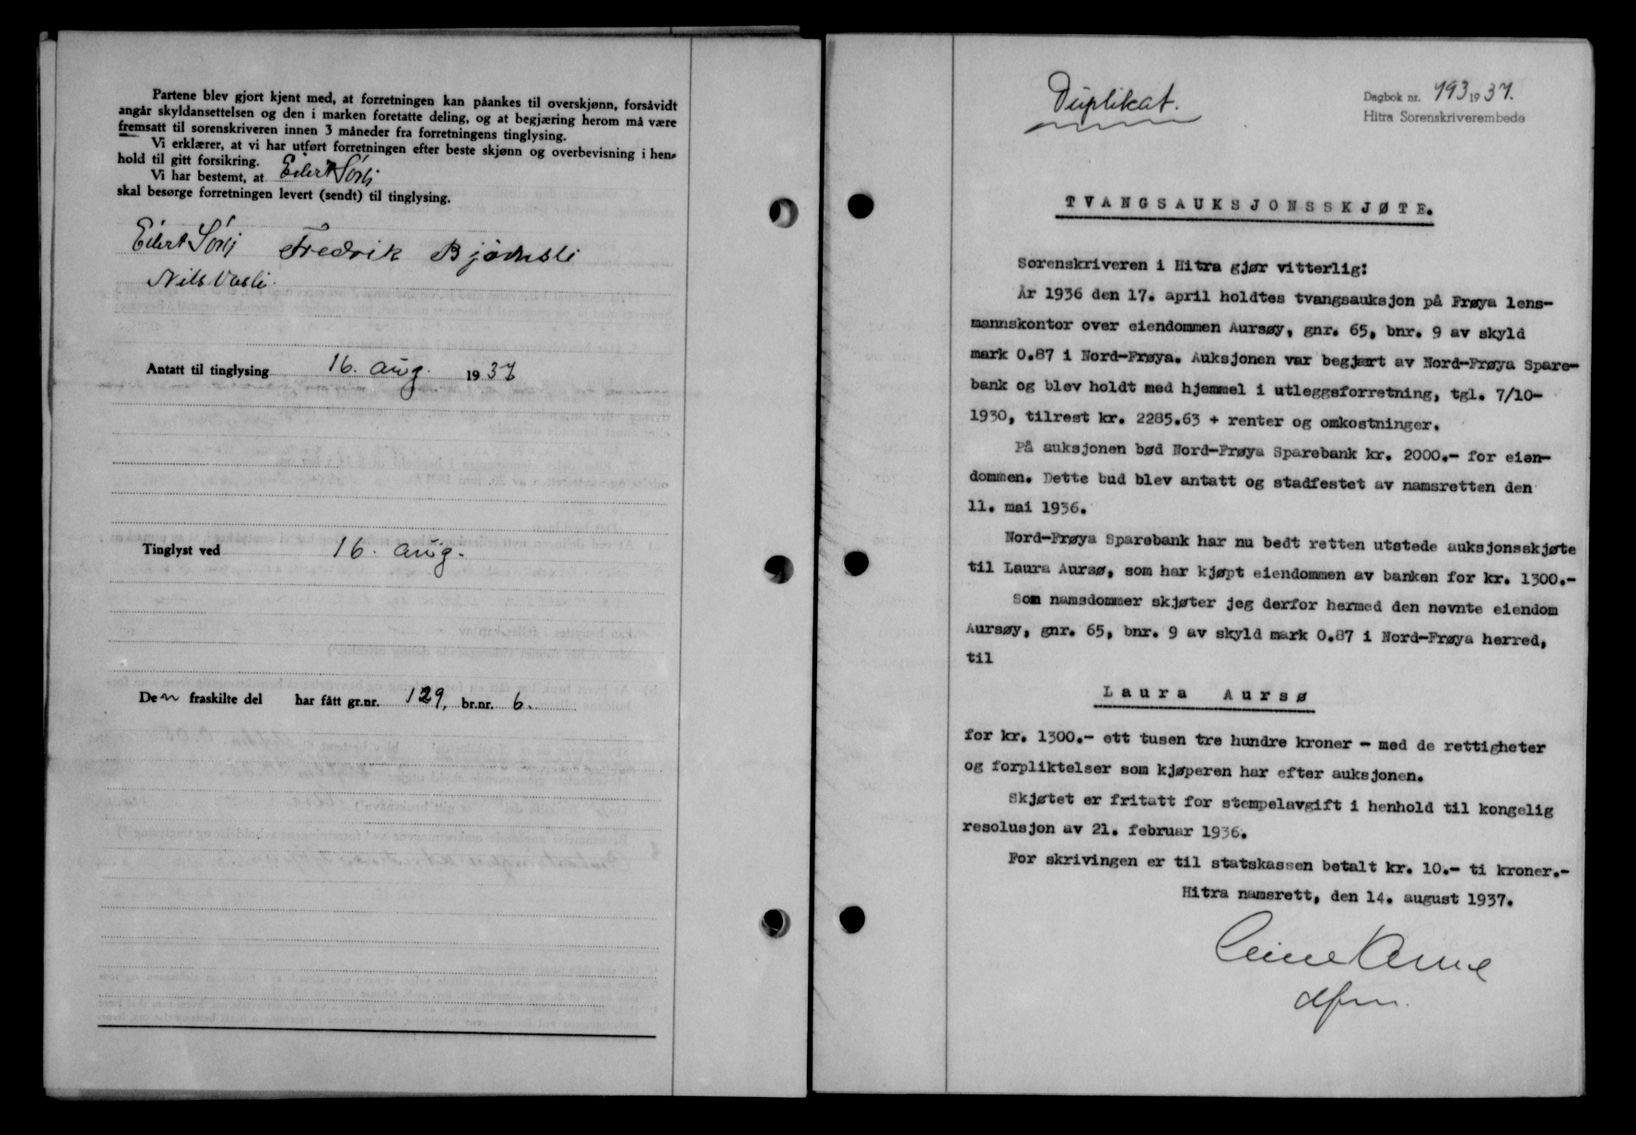 Partene blev gjort kjent med, at forretningen kan påankes til overskjønn, forsåvidt
angår skyldansettelsen og den i marken foretatte deling, og at begjæring herom må være
fremsatt til sorenskriveren innen 3 måneder fra forretningens tinglysing.
Vi erklærer, at vi har utført forretningen efter beste skjønn og overbevisning i hen-
hold til gitt forsikring.
Vi har bestemt, at Eilert Sørli
skal besørge forretningen levert (sendt) til tinglysing.
Eilert Sørli Fredrik Bjørnsli
Nils Vasli
Antatt til tinglysing 16. aug. 1937
Tinglyst ved 16. aug.
Den fraskilte del har fått gr.nr. 129, br.nr. 6.
Duplikat.
Dagbok nr. 793 1937.
Hitra Sorenskriverembede
TVANGSAUKSJONSSKJØTE.
Sorenskriveren i Hitra gjør vitterlig:
År 1936 den 17. april holdtes tvangsauksjon på Frøya lens-
mannskontor over eiendommen Aursøy, gnr. 65, bnr. 9 av skyld
mark 0.87 i Nord-Frøya. Auksjonen var begjært av Nord-Frøya Spare-
bank og blev holdt med hjemmel i utleggsforretning, tgl. 7/10-
1930, tilrest kr. 2285.63 + renter og omkostninger.
På auksjonen bød Nord-Frøya Sparebank kr. 2000.- for eien-
dommen. Dette bud blev antatt og stadfestet av namsretten den
11. mai 1936.
Nord-Frøya Sparebank har nu bedt retten utstede auksjonsskjøte
til Laura Aursø, som har kjøpt eiendommen av banken for kr. 1300.-
Som namsdommer skjøter jeg derfor hermed den nevnte eiendom
Aursøy, gnr. 65, bnr. 9 av skyld mark 0.87 i Nord-Frøya herred,
til
Laura Aursø
for kr. 1300.- ett tusen tre hundre kroner - med de rettigheter
og forpliktelser som kjøperen har efter auksjonen.
Skjøtet er fritatt for stempelavgift i henhold til kongelig
resolusjon av 21. februar 1936.
For skrivingen er til statskassen betalt kr. 10.- ti kroner.-
Hitra namsrett, den 14. august 1937.